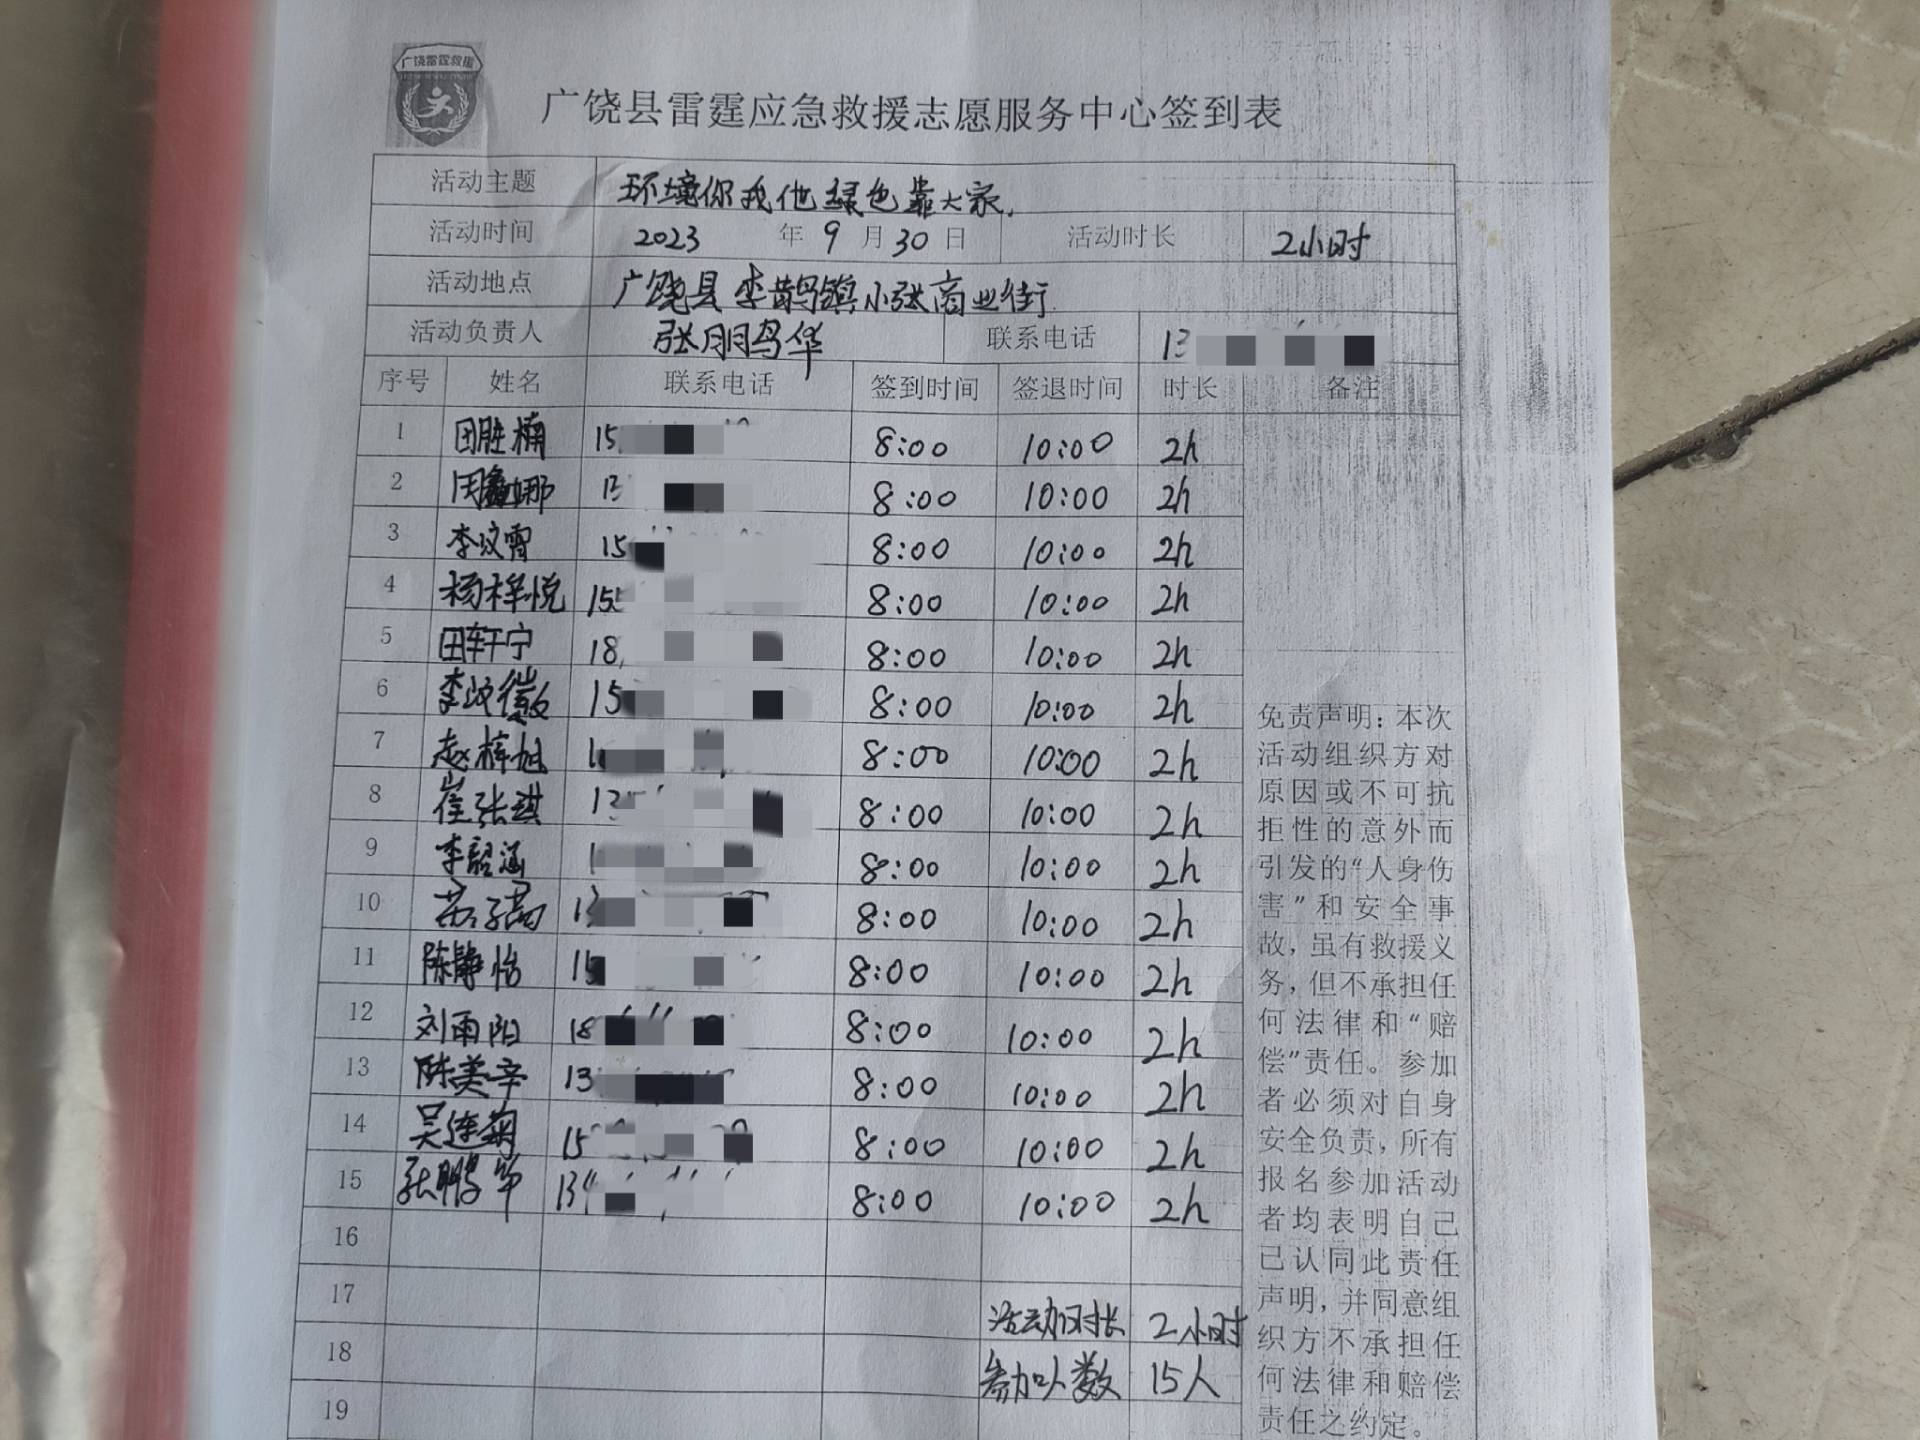 广饶雷霆救援
广饶县雷霆应急救援志愿服务中心签到表
活动主题 环境你我他绿色靠大家.
活动时间 2023 年 9 月 30 日 活动时长 2小时
活动地点 广饶县李鹊镇小张商业街.
活动负责人 张朋鸟华 联系电话 13
序号 姓名 联系电话 签到时间 签退时间 时长 备注
1 田胜楠 15 8:00 10:00 2h
2 8:00 10:00 2h
3 李汶霄 15 8:00 10:00 2h
4 杨梓悦 155 8:00 10:00 2h
5 田轩宁 18 8:00 10:00 2h
6 李汶徽 15 8:00 10:00 2h
7 赵梓旭 1 8:00 10:00 2h
8 崔张琪 13 8:00 10:00 2h
9 李韶涵 1 8:00 10:00 2h
10 13 8:00 10:00 2h
11 陈静怡 15 8:00 10:00 2h
12 刘雨阳 18 8:00 10:00 2h
13 陈美辛 13 8:00 10:00 2h
14 吴连菊 15 8:00 10:00 2h
15 张鹏华 13 8:00 10:00 2h
16
17 活动时长 2小时
18 参加人数 15人
19
免责声明：本次
活动组织方对
原因或不可抗
拒性的意外而
引发的“人身伤
害”和安全事
故，虽有救援义
务，但不承担任
何法律和“赔
偿”责任。参加
者必须对自身
安全负责，所有
报名参加活动
者均表明自己
已认同此责任
声明，并同意组
织方不承担任
何法律和赔偿
责任之约定。